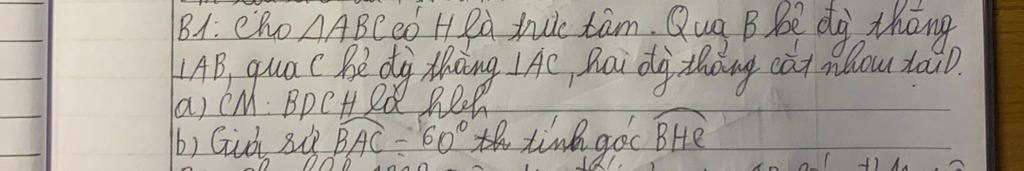 B1: Cho ΔABC có H là trực tâm. Qua B kẻ đg thẳng
⊥AB, qua C kẻ đg thẳng ⊥AC, hai đg thẳng cắt nhau tại D.
a) CM: BDCH là hbh
b) Giả sử BAC = 60° th tính góc BHC